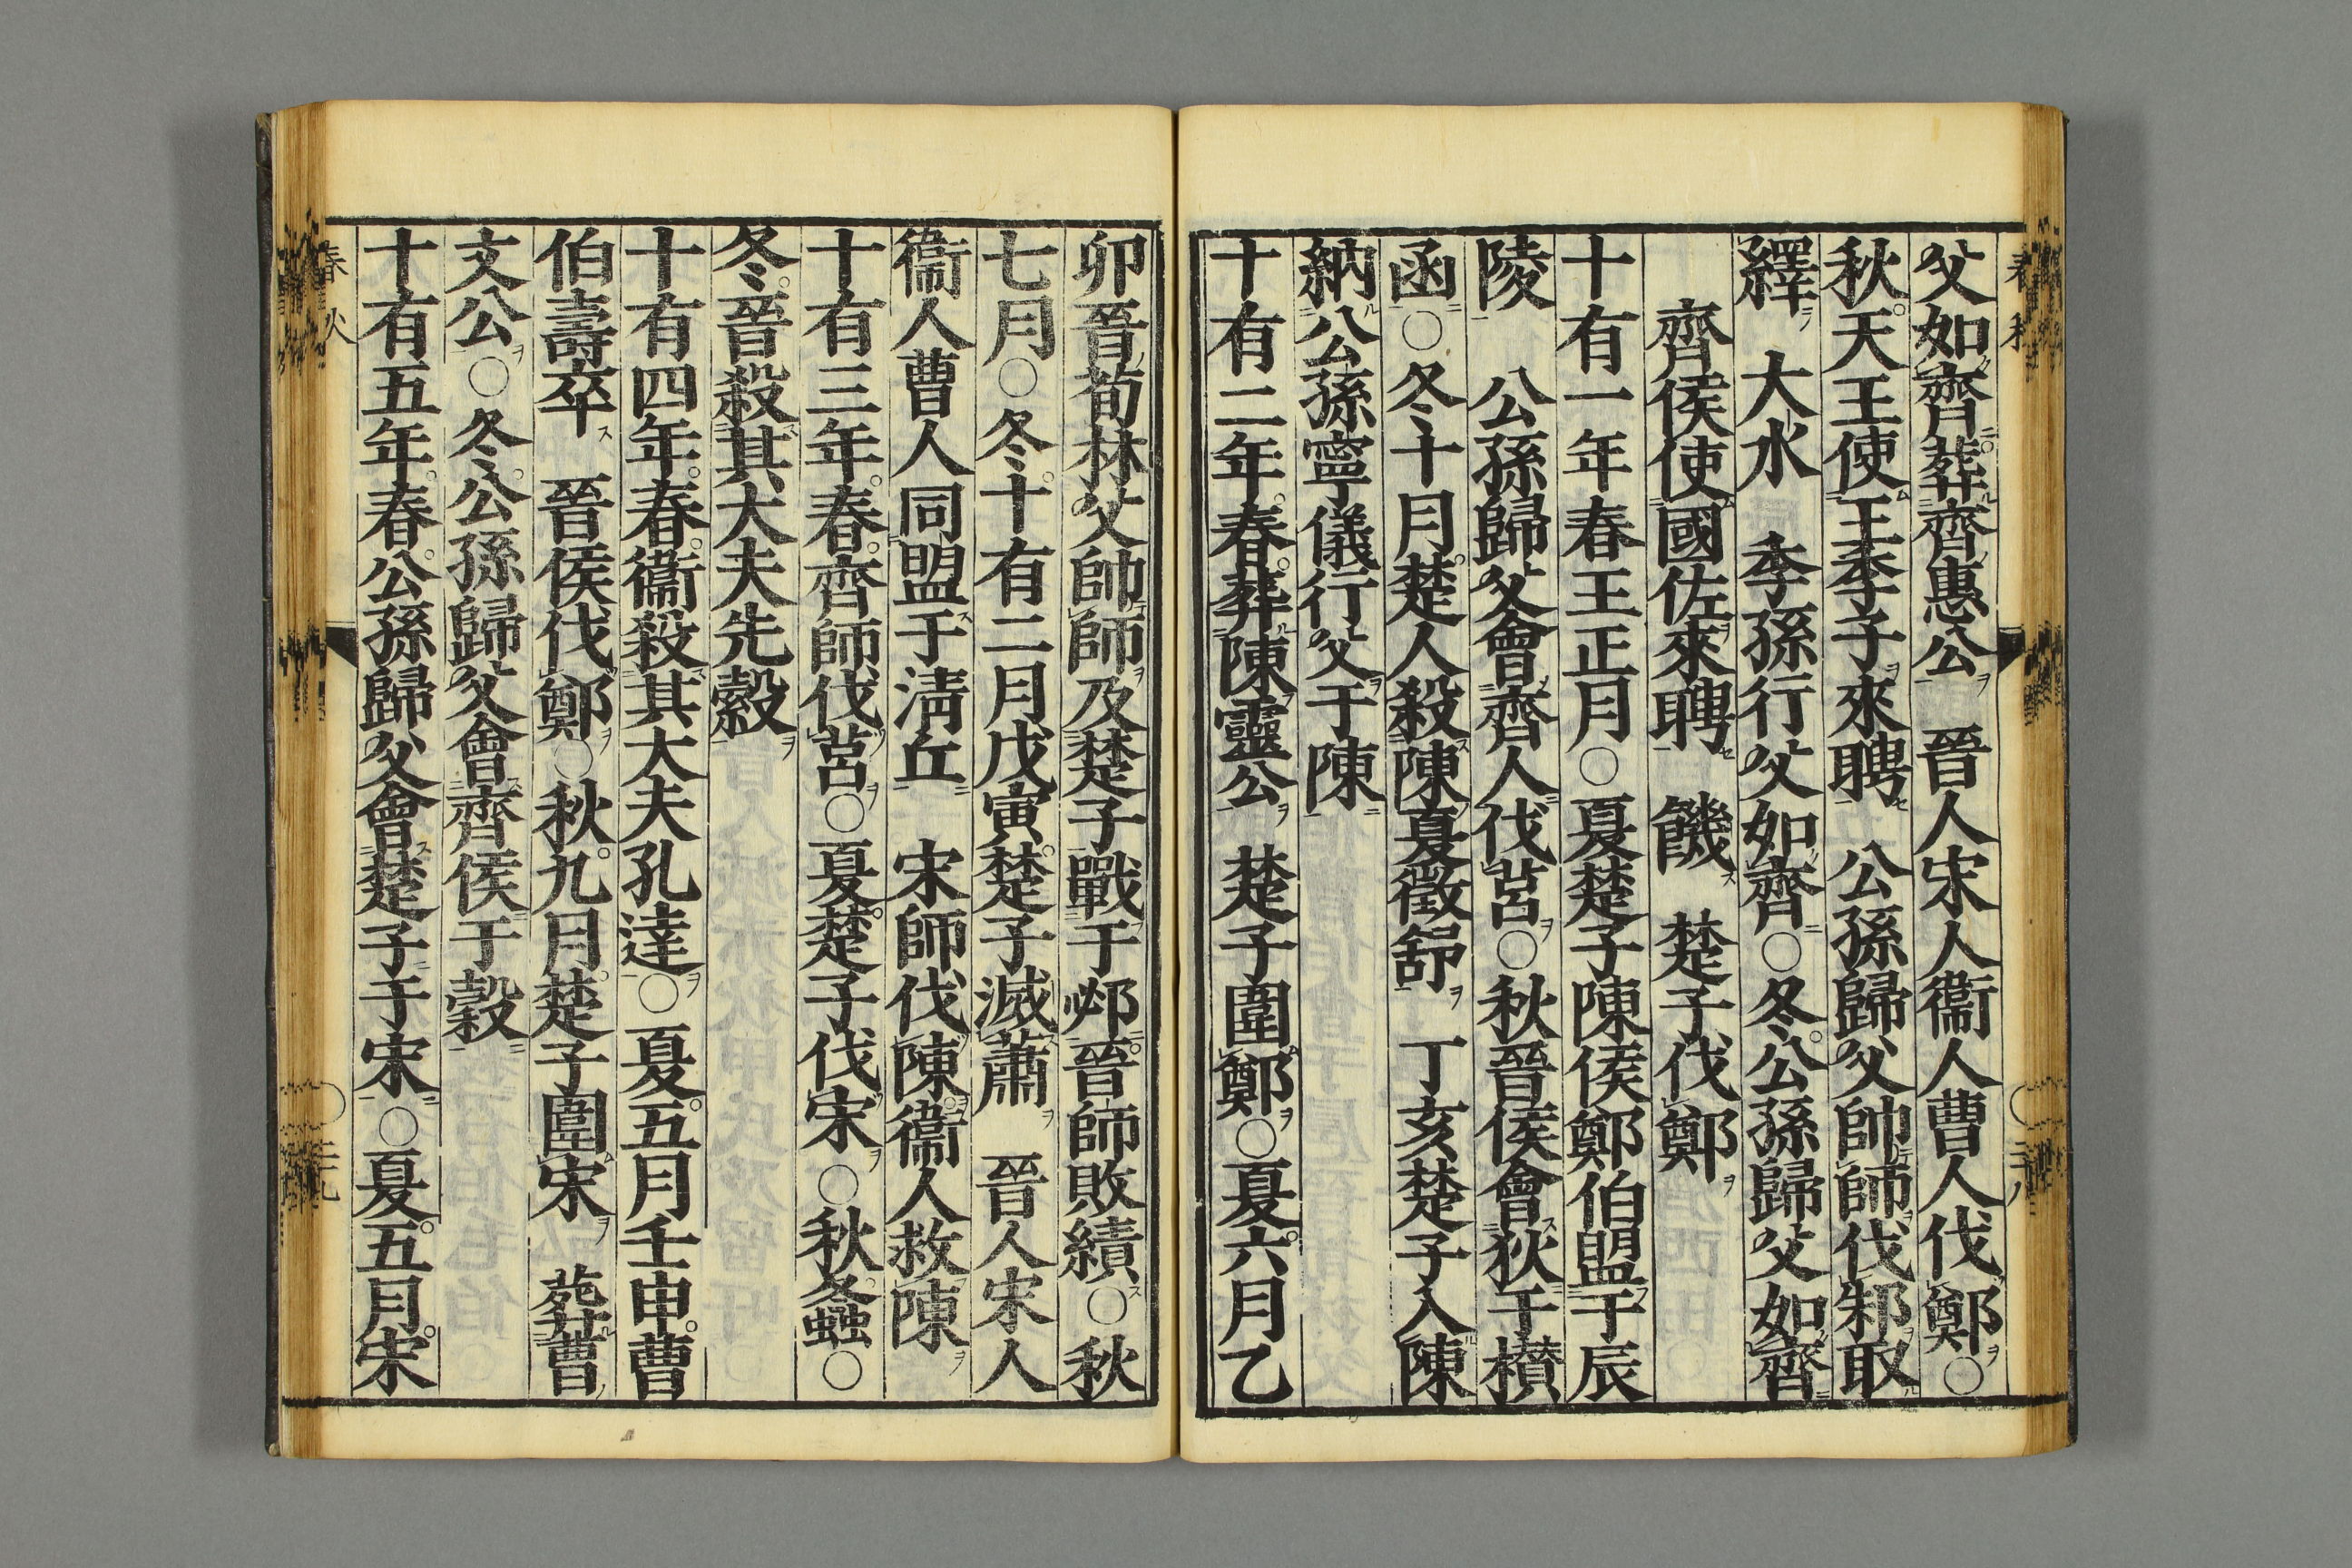 父如齊葬齊惠公　晉人宋人衞人曹人伐鄭○
秋天王使王季子來聘　公孫歸父帥師伐邾取
繹　大水　季孫行父如齊○冬公孫歸父如齊
齊侯使國佐來聘　饑　楚子伐鄭
十有一年春王正月○夏楚子陳侯鄭伯盟于辰
陵　公孫歸父會齊人伐莒○秋晉侯會狄于欑
函○冬十月楚人殺陳夏徵舒　丁亥楚子入陳
納公孫寧儀行父于陳
十有二年春葬陳靈公　楚子圍鄭○夏六月乙
卯晉荀林父帥師及楚子戰于邲晉師敗績○秋
七月○冬十有二月戊寅楚子滅蕭　晉人宋人
衞人曹人同盟于淸丘　宋師伐陳衞人救陳
十有三年春齊師伐莒○夏楚子伐宋○秋螽○
冬晉殺其大夫先縠
十有四年春衞殺其大夫孔達○夏五月壬申曹
伯壽卒　晉侯伐鄭○秋九月楚子圍宋　葬曹
文公○冬公孫歸父會齊侯于穀
十有五年春公孫歸父會楚子于宋○夏五月宋